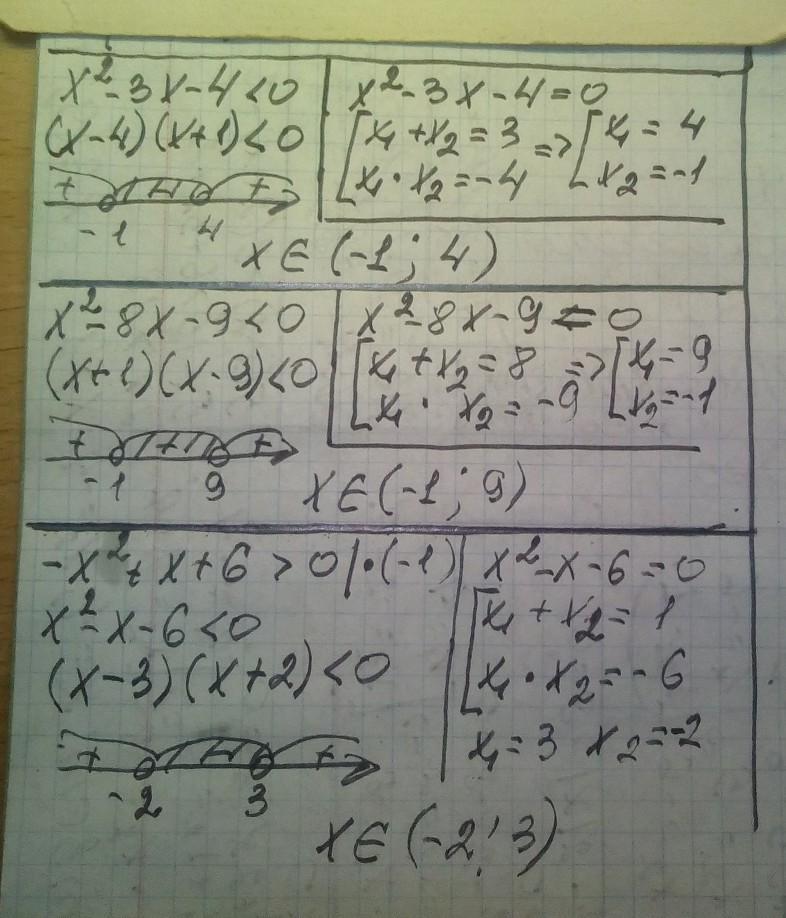 x²-3x-4<0
(x-4)(x+1)<0
+ - +
-1 4
x²-3x-4=0
[x₁+x₂=3 => [x₁=4
x₁·x₂=-4 x₂=-1
x∈(-1;4)
x²-8x-9<0
(x+1)(x-9)<0
+ + +
-1 9
x²-8x-9=0
[x₁+x₂=8 => [x₁=9
x₁· x₂=-9 x₂=-1
x∈(-1;9)
-x²+x+6>0|·(-1)
x²-x-6<0
(x-3)(x+2)<0
+ - +
-2 3
x²-x-6=0
[x₁+x₂=1
x₁·x₂=-6
x₁=3 x₂=-2
x∈(-2;3)